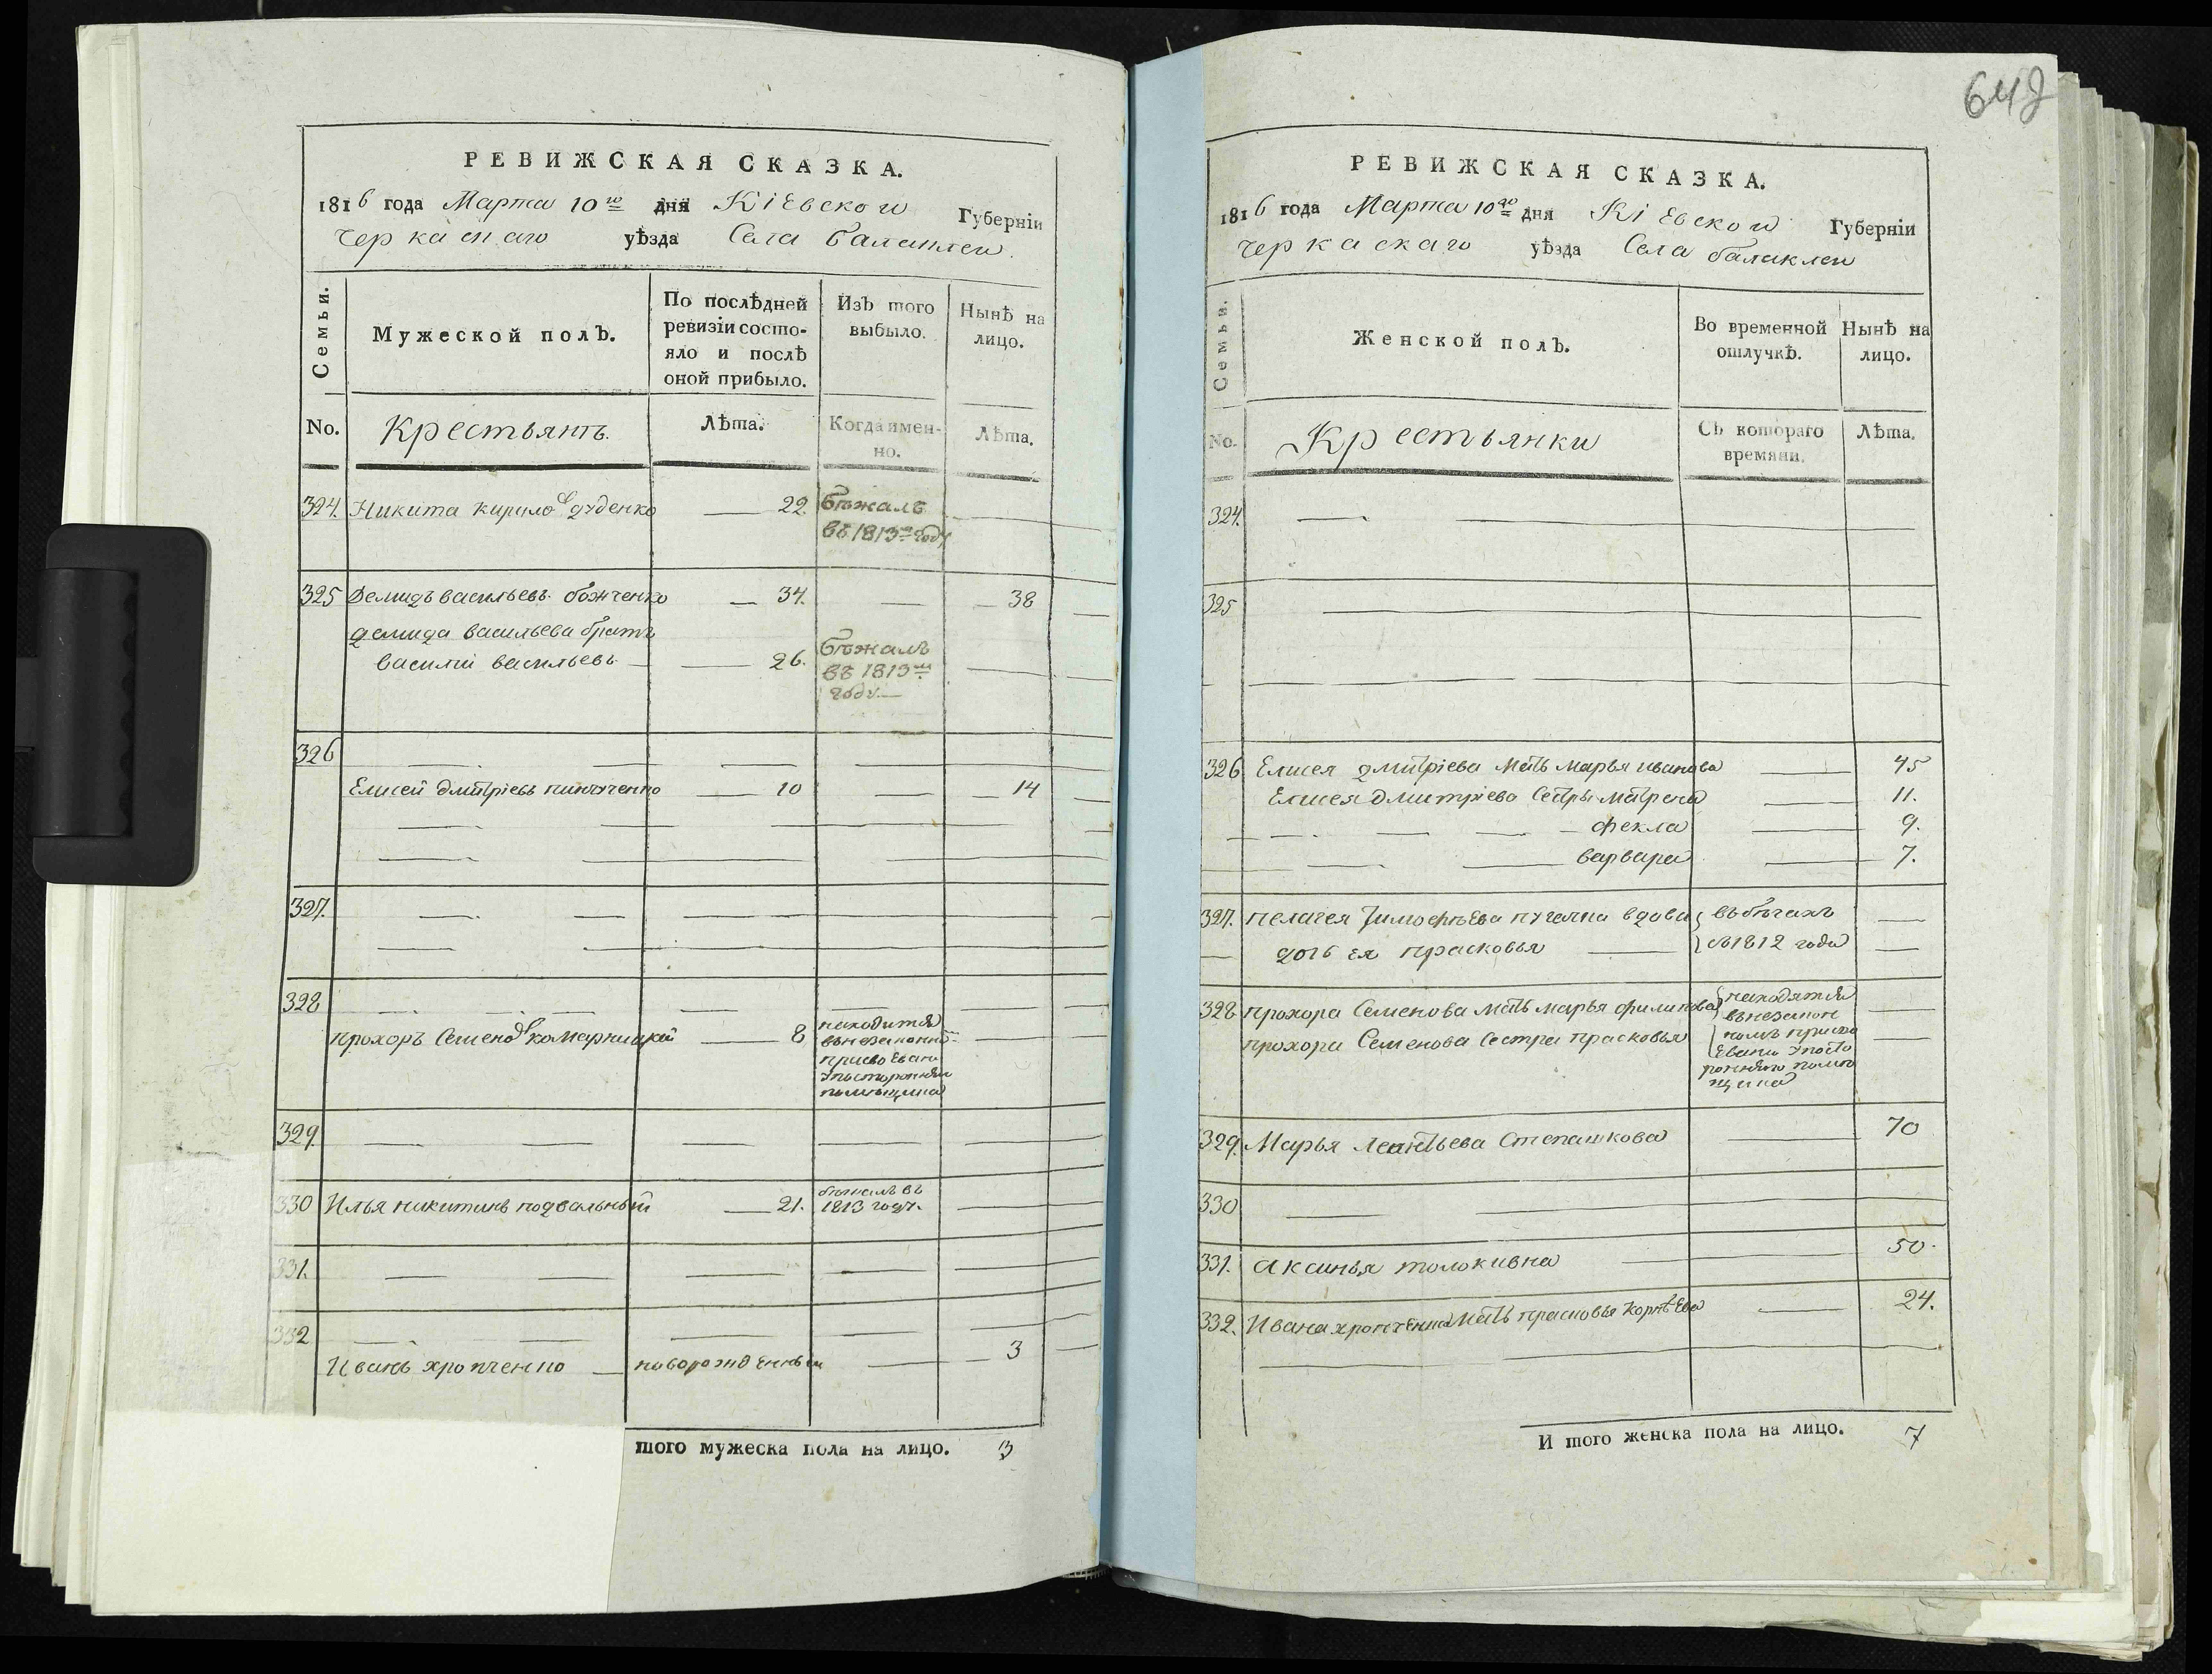 642
РЕВИЖСКАЯ СКАЗКА.
1816 года Марта 10го дня Кіевской Губерніи
Черкаскаго уѣзда Села Балаклеи.
Семьи.
Мужеской полъ.
По послѣдней ревизіи состо-
яло и послѣ
оной прибыло.
Изъ того
выбыло.
Нынѣ на
лицо.
No.
Крестьянъ.
Лѣта.
Когда имен-
но.
Лѣта.
324. Никита кирилов дуденко 22. бѣжалъ
въ 1813м году
325 Демидъ васильевъ божченко 34. 38
демида васильева братъ
василий васильевъ 26. бѣжалъ
въ 1813м
году
326
Елисей дмитріевъ 10 14
327.
328
прохоръ Семеновъ комарницкій 8 находится
внезаконно
присвоении
у посторонняго
помещика
329.
330 Илья никитинъ подвальный 21. бѣжалъ въ
1813 году.
331.
332
Иванъ хропченко новорожденный 3
того мужеска пола на лицо. 3
РЕВИЖСКАЯ СКАЗКА.
1816 года Марта 10го дня Кіевской Губерніи
Черкаскаго уѣзда Села балаклеи
Семьи.
Женской полъ.
Во временной
отлучкѣ.
Нынѣ на
лицо.
No.
Крестьянки
Съ котораго
времяни.
Лѣта.
324.
325
326 Елисея дмитріева мать марья иванова 45
Елисея Дмитріева сестры матрена 11.
фекла 9.
варвара 7.
327. пелагея тимофѣева вдова въ бѣгахъ
дочь ея прасковья съ 1812 года
328 прохора Семенова мать марья филипова находятся
прохора Семенова сестра прасковья внезакон
номъ присво
ении у посто
ронняго помѣ
щика
329. Марья леонтьева Степашкова 70
330
331. аксинья толокивна 50.
332. Ивана хропченка мать прасковья корнѣева 24.
И того женска пола на лицо. 7